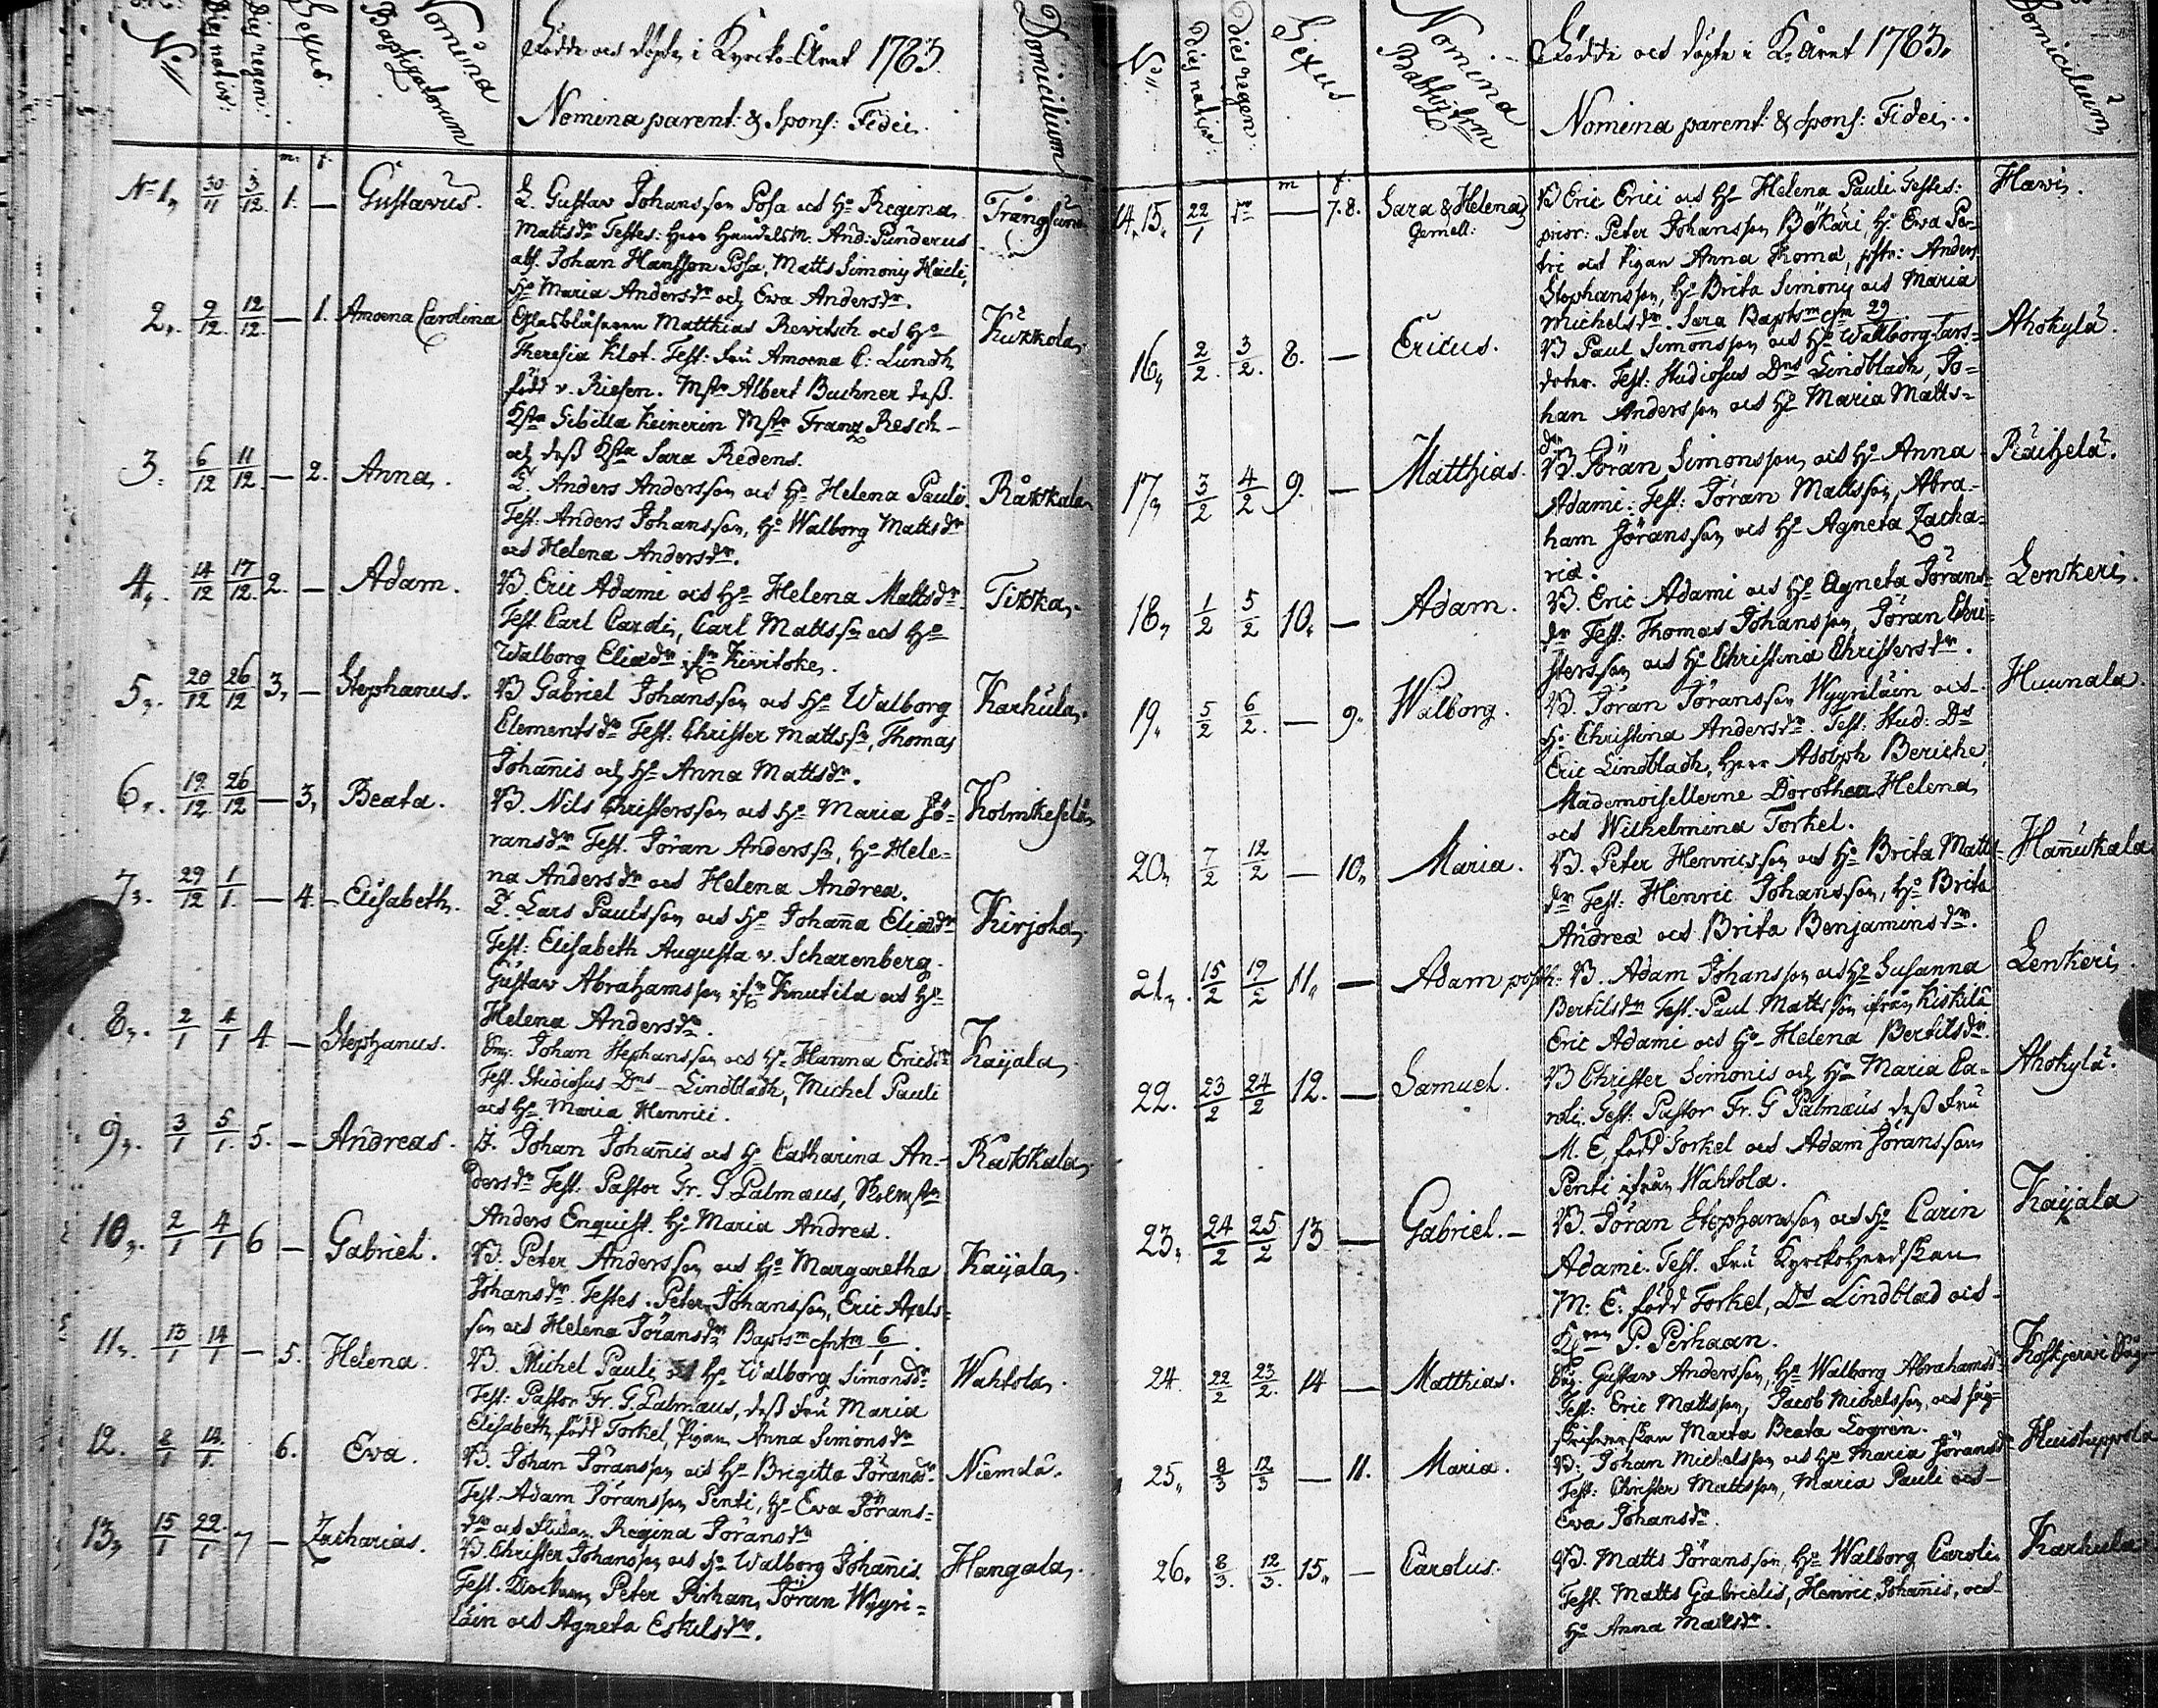 No
Dies nativ:
Dies regen:
Sexus.
Nomina Baptizatorum
Födde och döpte i Kyrcko-Året 1783.
Nomina parent: & Spons: Fidei.
Domicilium
m. f.
No 1, 30/11 3/12. 1. — Gustavus. L. Gustav Johansson Posa och Ho Regina Trångsund
Mattsdr Testes: Herr Handelsm. And: Sunderus
Johan Hansson Posa, Matts Simonis
Ho Maria Andersdr och Ewa Andersdr.
2,. 9/12. 12/12 — 1. Amoena Carolina Glasblåsaren Matthias Rewitsch och Ho Kukkola,
Theresia Pilot. Test: Fru Amoena C: Lundh,
född v. Riesen. Mstr Albert Buchner dess
Hstr Sibilla Keinerin Mstr Franz Resch —
och dess Hstr Sara Redens.
3. 6/12 11/12. — 2. Anna. Anders Andersson och Ho Helena Pauli. Råkkala
Test: Anders Johansson, Ho Walborg Mattsdr
och Helena Andersdr.
4,. 14/12 17/12. 2. — Adam. B. Eric Adami och Ho Helena Mattsdr Tikka,
Test Carl Caroli, Carl Mattssn och Ho
Walborg Eliædr ifrn Kivitoke,
5,. 20/12 26/12 3, — Stephanus. B Gabriel Johansson och Ho Walborg Karhula,
Clementsdr Test: Christer Mattssn, Thomas
Johañis och Ho Anna Mattsdr.
6,. 19/12. 26/12 — 3, Beata. B. Nils Christersson och Ho Maria Jö- Kolmikeselä
ransdr Test. Jöran Anderssn, Ho Hele-
na Andersdr och Helena Andreæ.
7,. 29/12 1/1. — 4. Elisabeth. L. Lars Paulsson och Ho Johaña Eliædr Kirjola,
Test: Elisabeth Augusta v. Scharenberg.
Gustav Abrahamsson ifrn Knutila och Ho
Helena Andersdr.
8,. 2/1 4/1 4. — Stephanus. Johan Stephansson och Ho Hanna Ericsdr Kaijala,
Test. Studiosus Dns Lindbladh, Michel Pauli
och Ho Maria Henrici.
9,. 3/1 5/1. 5. — Andreas. L. Johan Johañis och Ho Catharina An- Råkkala,
dersdr Test: Pastor Fr. G Palmæus,
Anders Enquist. Ho Maria Andreæ.
10,. 2/1 4/1 6 — Gabriel. B. Peter Andersson och Ho Margaretha Kaijala,
Johansdr. Testes. Peter Johansson, Eric Axels-
son och Helena Jöransdr Baptsm cfntm 6/1.
11,. 13/1 14/1 — 5. Helena. B. Michel Pauli och Ho Walborg Simonsdr Wahtola,
Test: Pastor Fr. G. Palmæus, dess Fru Maria
Elisabeth född Torkel, Pigan Anna Simonsdr
12. 8/1 14/1. 6. Eva. B. Johan Jöransson och Ho Brigitta Jöransdr. Niemelä.
Test. Adam Jöransson Penti, Ho Eva Jörans-
dr och Regina Jöransdr
13, 15/1 22/1 7 — Zacharias. B. Christer Johansson och Ho Walborg Johañis Hangala,
Test. Peter Pirhan, Jöran Wyyri-
läin och Agneta Eskilsdr.
No
Dies nativ:
Dies regen:
Sexus
Nomina Baptizatm
Födde och döpte i K. Året 1783.
Nomina parent: & Spons: Fidei.
Domicilium
m f.
14,15, 22/1 — 7. 8. Sara & Helena, B Eric Erici och Ho Helena Pauli Testes: Hawi,
Gemell: prior: Peter Johansson Bökäri, Ho Ewa Pe-
tri och Pigan Anna Thomæ, pstr: Anders
Stephansson, Ho Brita Simonis och Maria
Michelsdr. Sara Baptsm cfm 29/1
16, 2/2. 3/2. 8. — Ericus. B Paul Simonsson och Ho Walborg Lars- Ahokylä.
doter. Test: Studiosus Dns Lindbladh, Jo-
han Andersson och Ho Maria Matts-
dr
17, 3/2 4/2 9. — Matthias. B. Jöran Simonsson och Ho Anna Räihelä.
Adami: Test: Jöran Mattsson, Abra-
ham Jöransson och Ho Agneta Zacha-
riæ.
18, 1/2 5/2 10, — Adam. B. Eric Adami och Ho Agneta Jörans- Lenkeri,
dr Test: Thomas Johansson, Jöran Chri-
stersson och Ho Christina Christersdr.
19, 5/2 6/2. — 9. Walborg. B. Jöran Jöransson Wyyriläin och Huunala.
Ho Christina Andersdr. Test: Stud: Ds
Eric Lindbladh, Herr Adolph Beriche,
Mademoisellerne Dorothea Helena,
och Wilhelmina Torkel.
20, 7/2 12/2 — 10, Maria. B. Peter Henricsson och Ho Brita Matts- Hañukala
dr Test: Henric Johansson, Ho Brita
Andreæ och Brita Benjaminsdr.
21,. 15/2 19/2 11, — Adam posth: B. Adam Johansson och Ho Susanna Lenkeri,
Bertilsdr Test. Paul Mattsson ifrån Kiskilä
Eric Adami och Ho Helena Bertilsdr.
22. 23/2 24/2 12. — Samuel. B Christer Simonis och Ho Maria Ca- Ahokylä.
roli. Test: Pastor Fr. G Palmæus dess Fru
M. E, född Torkel och Adam Jöransson
Penti ifrån Wahtola.
23, 24/2 25/2 13 — Gabriel. — B. Jöran Stephansson och Ho Carin Kaijala
Adami. Test. Fru Kyrckoherdskan
M. E: född Torkel, Ds Lindblad och
P. Perhaan.
24. 22/2 23/2. 14 — Matthias. Gustav Andersson, Ho Walborg Abrahamsdr Koskjerwi Såg
Test: Eric Mattsson, Jacob Michelsson, och
Marta Beata Logren.
25, 8/3 12/3 — 11. Maria. B: Johan Michelsson och Ho Maria Jöransdr
Test: Christer Mattsson, Maria Pauli och
Eva Johansdr.
26, 8/3. 12/3. 15, — Carolus. B. Matts Jöransson, Ho Walborg Caroli Karhula
Test. Matts Gabrielis, Henric Johañis, och
Ho Anna Mattsdr.